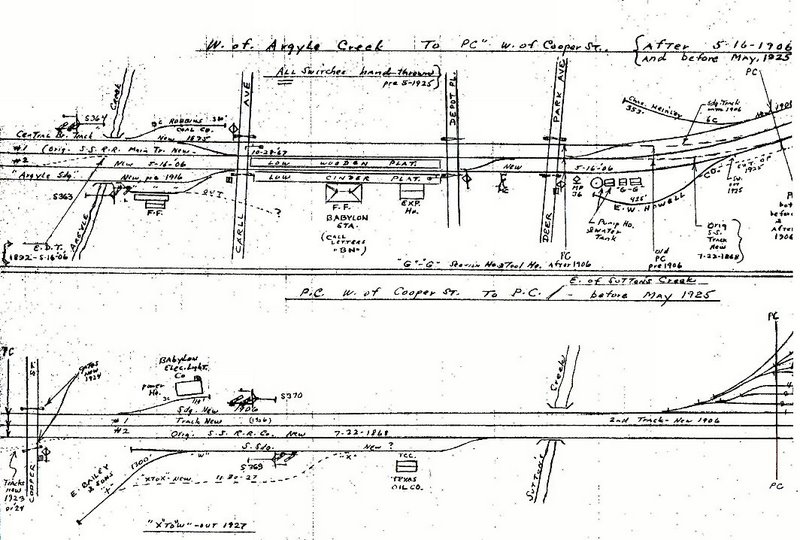 W. of Argyle Creek To "PC" W. of Cooper St.
After 5-16-1906
and before May, 1925
ALL Switches hand-thrown
pre 5-1925
PC
S364
Creek
ROBBINS
COAL CO.
New 1895
CARLL AVE
DEPOT PL.
DEER PARK AVE
Chas. Heinley
353'
Sdg. Track
from 1906
6C
New 1901
Central Br. Track
#1 (Orig. S.S.R.R. Main Tr. New.
10-28-67
#2
New 5-16-06
"Argyle Sdg"
New, pre 1916
LOW WOODEN PLAT.
LOW CINDER PLAT.
New
5-16-06
OUT OF
1925
Sw. out
1925
S363
F.F.
OUT
?
F.F.
BABYLON
STA.
(CALL
LETTERS
"BN")
EXP.
Ho.
MP
36
"G-G"
425'
E.W. HOWELL
Pump Ho.
& Water
Tank
ARGYLE
E.D.T.
1892-5-16-06
PC
old
PC
pre 1906
Orig
S.S.
Track
New
7-22-1868
"G"-"G" Section Ho. & Tool Ho. After 1906
P.C. W. of Cooper St. To P.C.
E. of Suttons Creek
- before May 1925
PC
ST.
GATES
New
1924
Babylon
Elec. Light
Co
Power
Ho.
S370
Sdg. New
1906
#1 Track New (1906)
#2 Orig. S.S.R.R.Co. New 7-22-1868
S. Sdg.
New ?
2nd Track - New 1906
Creek
PC
COOPER
Tracks
New
1923
or 24
E. BAILEY
& SONS
1200'
"W"
S369
"X"
"X" To "X" New 11-30-27
TCC.
TEXAS
OIL CO.
SUTTON'S
PC
"X" To "W" - OUT 1927